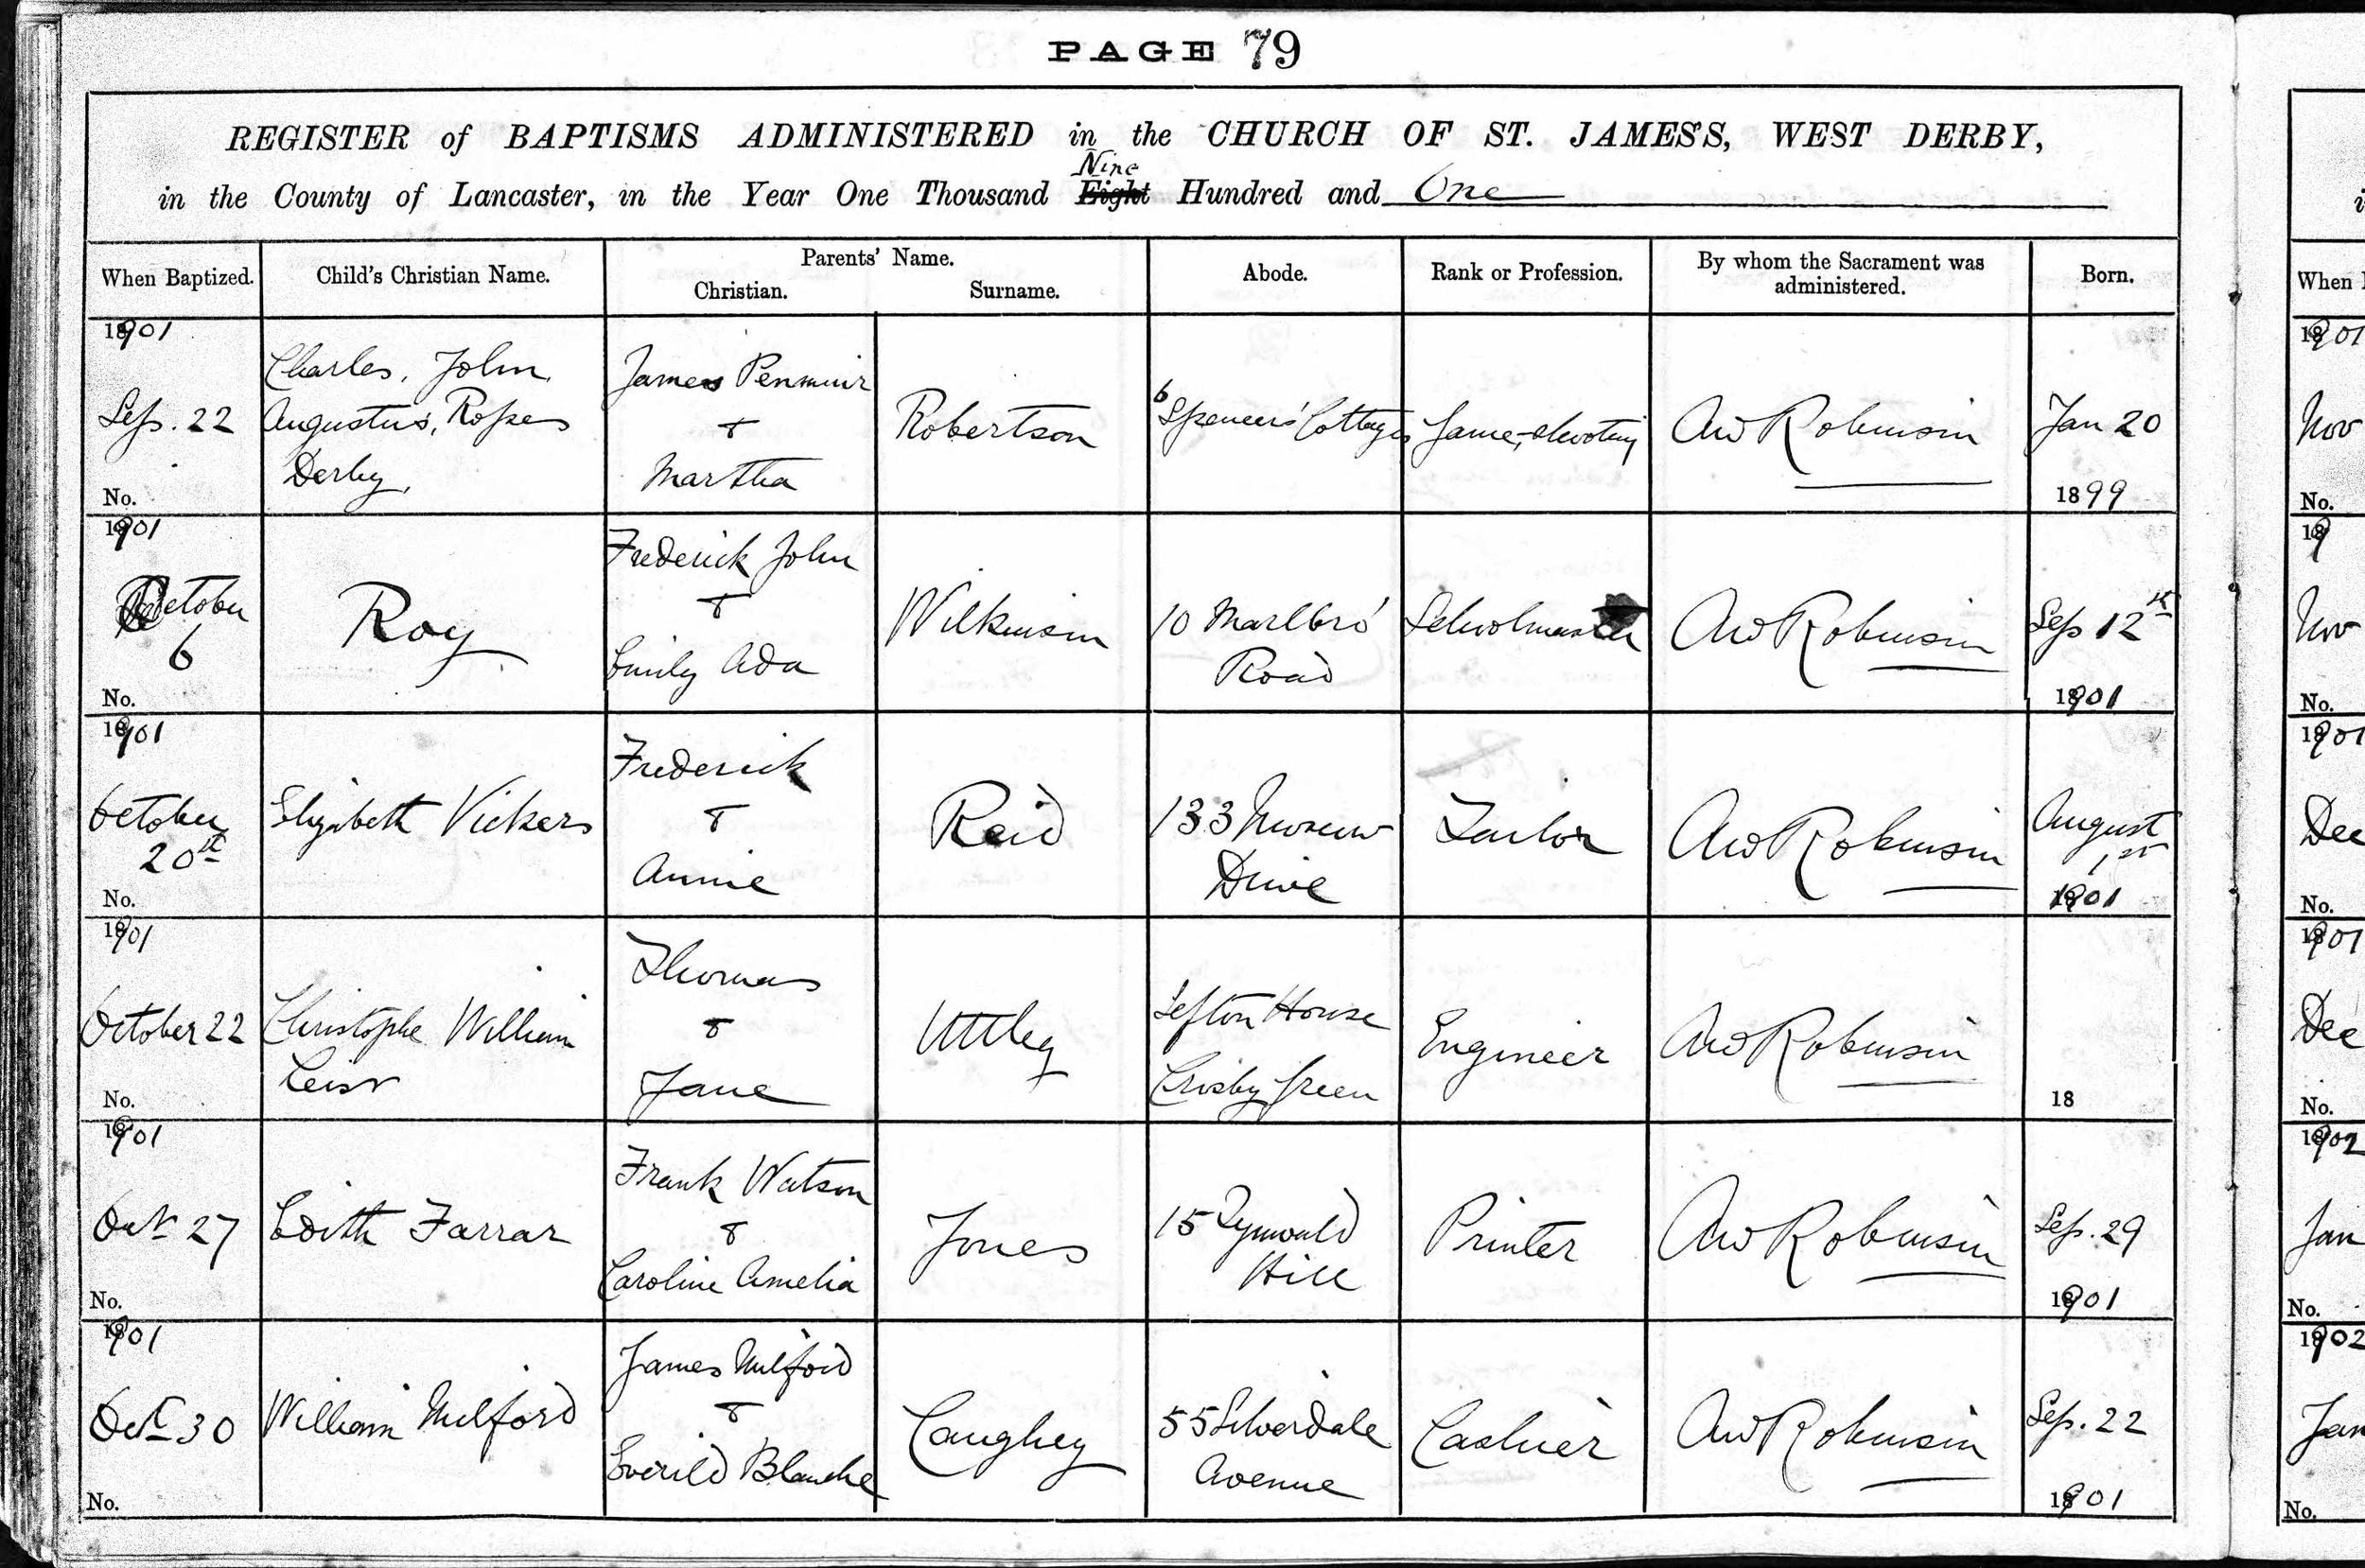 PAGE 79
REGISTER of BAPTISMS ADMINISTERED in the CHURCH OF ST. JAMES'S, WEST DERBY,
Nine
in the County of Lancaster, in the Year One Thousand Eight Hundred and One
When Baptized.
Child's Christian Name.
Parents' Name.
Christian.
Surname.
Abode.
Rank or Profession.
By whom the Sacrament was
administered.
Born.
1901
Sep. 22
No.
Charles, John,
Augustus, Ropes
Derby,
James Penmuir
&
Martha
Robertson
6 Spencers' Cottages
AW Robinson
Jan 20
1899
1901
October
6
No.
Roy
Frederick John
&
Emily Ada
Wilkinson
10 Marlbro'
Road
Schoolmaster
AW Robinson
Sep 12th
1901
1901
October
20th
No.
Elizabeth Vickers
Frederick
&
Annie
Reid
133 Moscow
Drive
Tailor
AW Robinson
August
1st
1901
1901
October 22
No.
Christophe William
Thomas
&
Jane
Uttley
Sefton House
Crosby Green
Engineer
AW Robinson
18
1901
Oct 27
No.
Edith Farrar
Frank Watson
&
Caroline Amelia
Jones
15 Tynwald
Hill
Printer
AW Robinson
Sep. 29
1901
1901
Oct 30
No.
William Milford
James Milford
&
Everild Blanche
Caughey
55 Silverdale
Avenue
Cashier
AW Robinson
Sep. 22
1901
When
1901
Nov
No.
19
Nov
No.
1901
Dec
No.
1901
Dec
No.
1902
Jan
No.
1902
Jan
No.